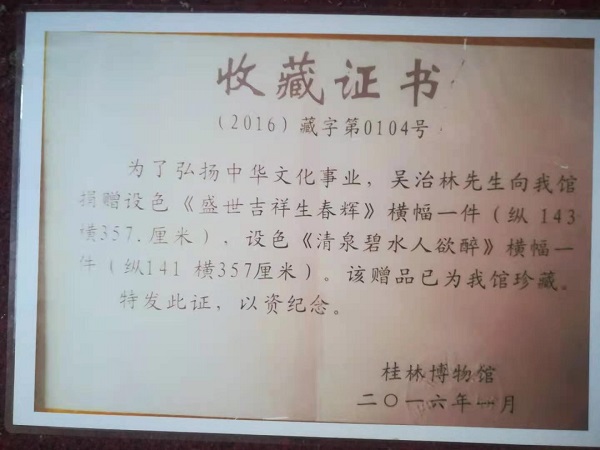 收藏证书
（2016）藏字第0104号
为了弘扬中华文化事业，吴治林先生向我馆
捐赠设色《盛世吉祥生春辉》横幅一件（纵 143
横357.厘米），设色《清泉碧水人欲醉》横幅一
件（纵141 横357厘米）。该赠品已为我馆珍藏。
特发此证，以资纪念。
桂林博物馆
二〇一六年一月